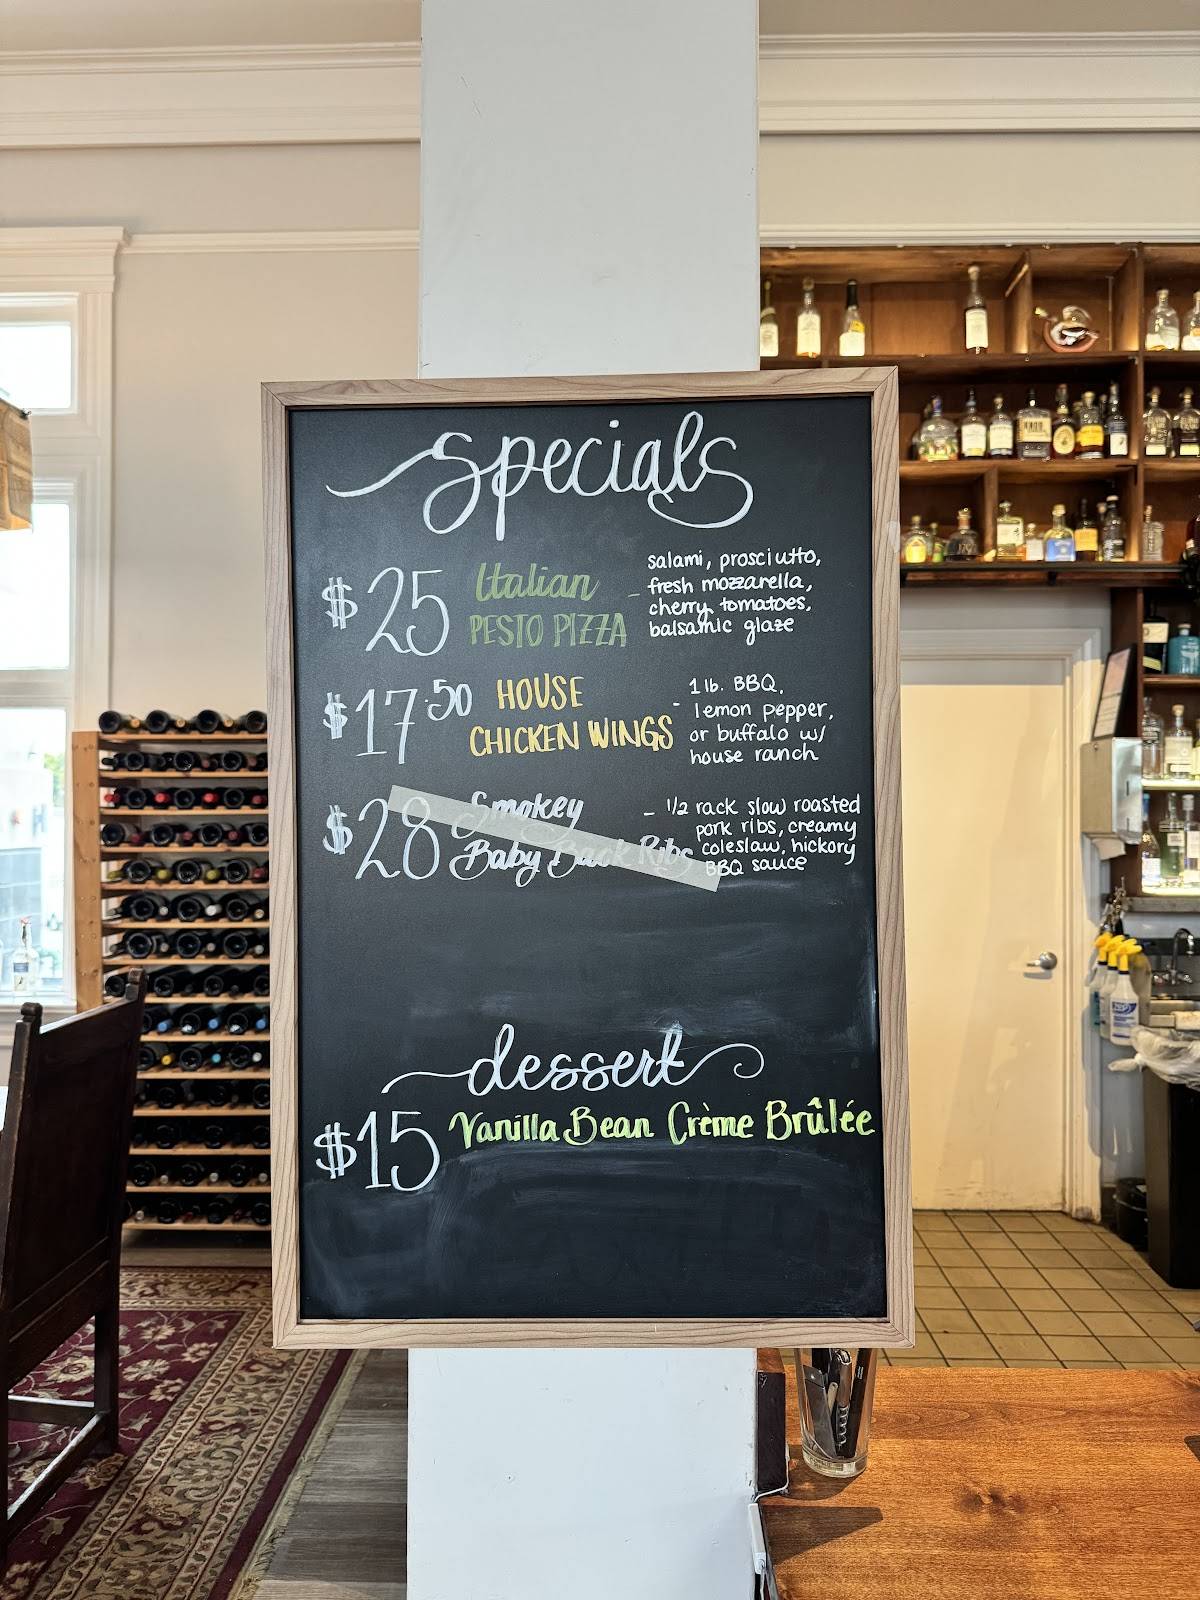 specials
$25 Italian PESTO PIZZA - salami, prosciutto,
fresh mozzarella,
cherry tomatoes,
balsamic glaze
$17.50 HOUSE CHICKEN WINGS - 1 lb. BBQ,
lemon pepper,
or buffalo w/
house ranch
$28 Smokey Baby Back Ribs - 1/2 rack slow roasted
pork ribs, creamy
coleslaw, hickory
BBQ sauce
dessert
$15 Vanilla Bean Crème Brûlée